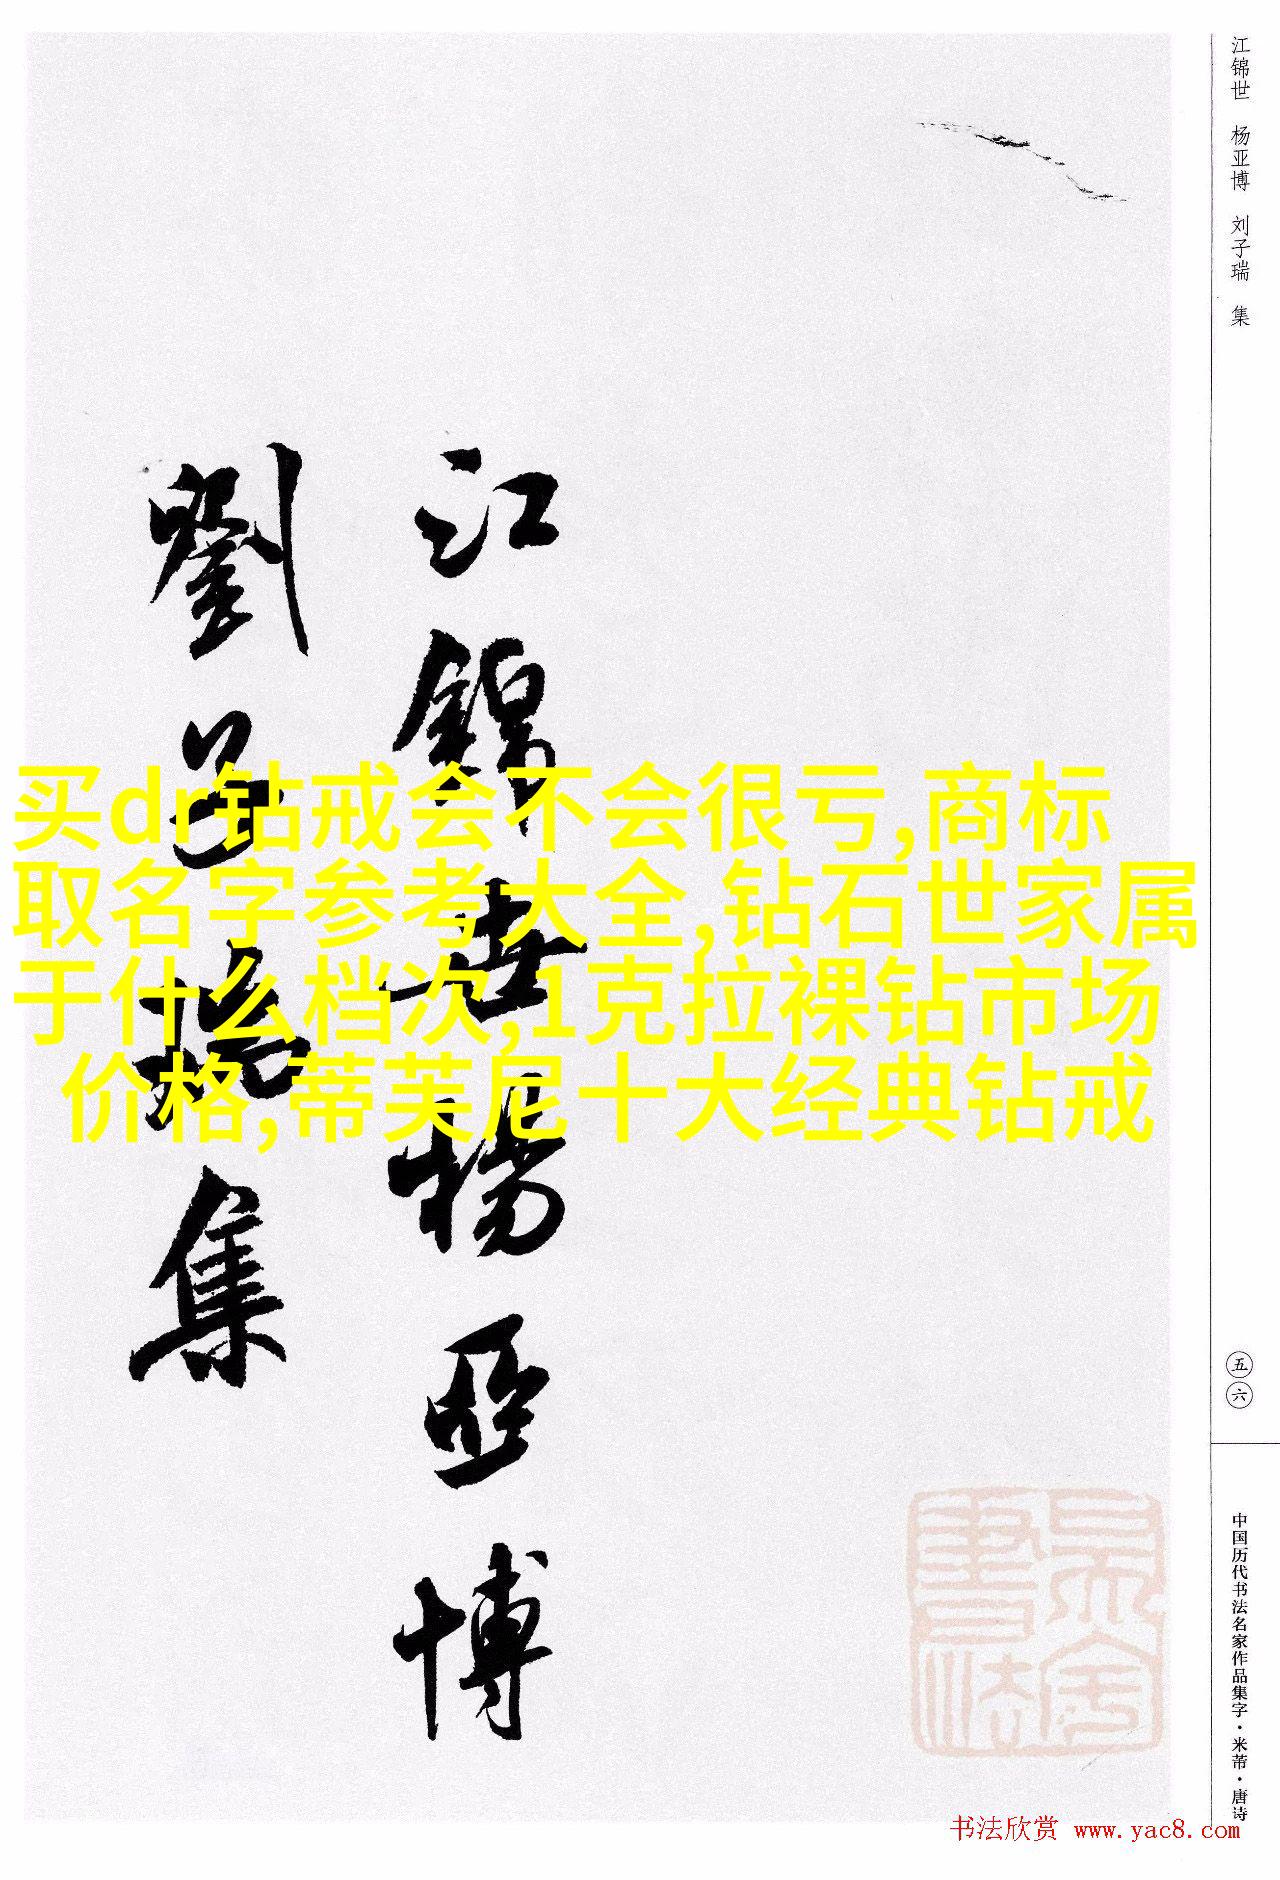 江锦世 杨亚博 刘子瑞 集
江錦世楊亞博
劉子瑞集
买dr钻戒会不会很亏,商标
取名字参考大全,钻石世家属
于什么档次,1克拉裸钻市场
价格,蒂芙尼十大经典钻戒
五六
中国历代书法名家作品集字·米芾·唐诗
书法欣赏 www.yac8.com